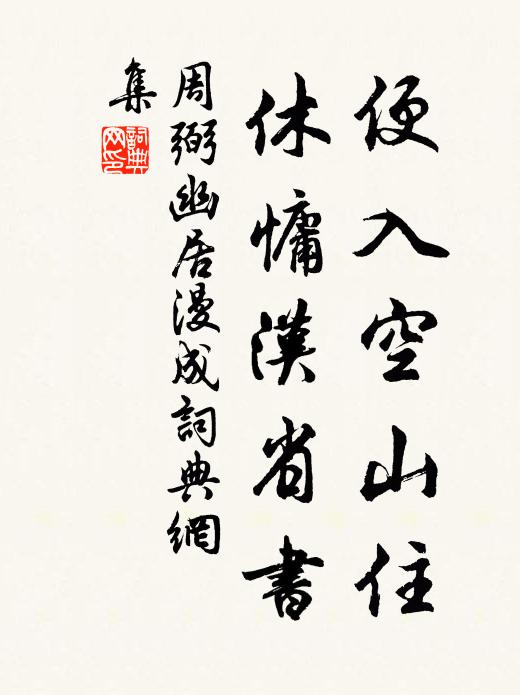 便入空山住
休慵漢省書
周弼幽居漫成詞典網
集
詞典
网印